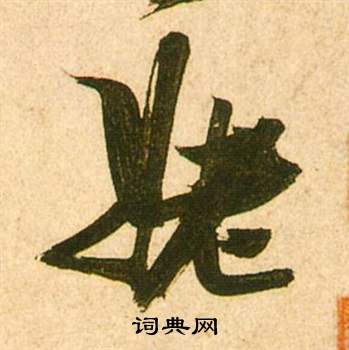 姥
词典网